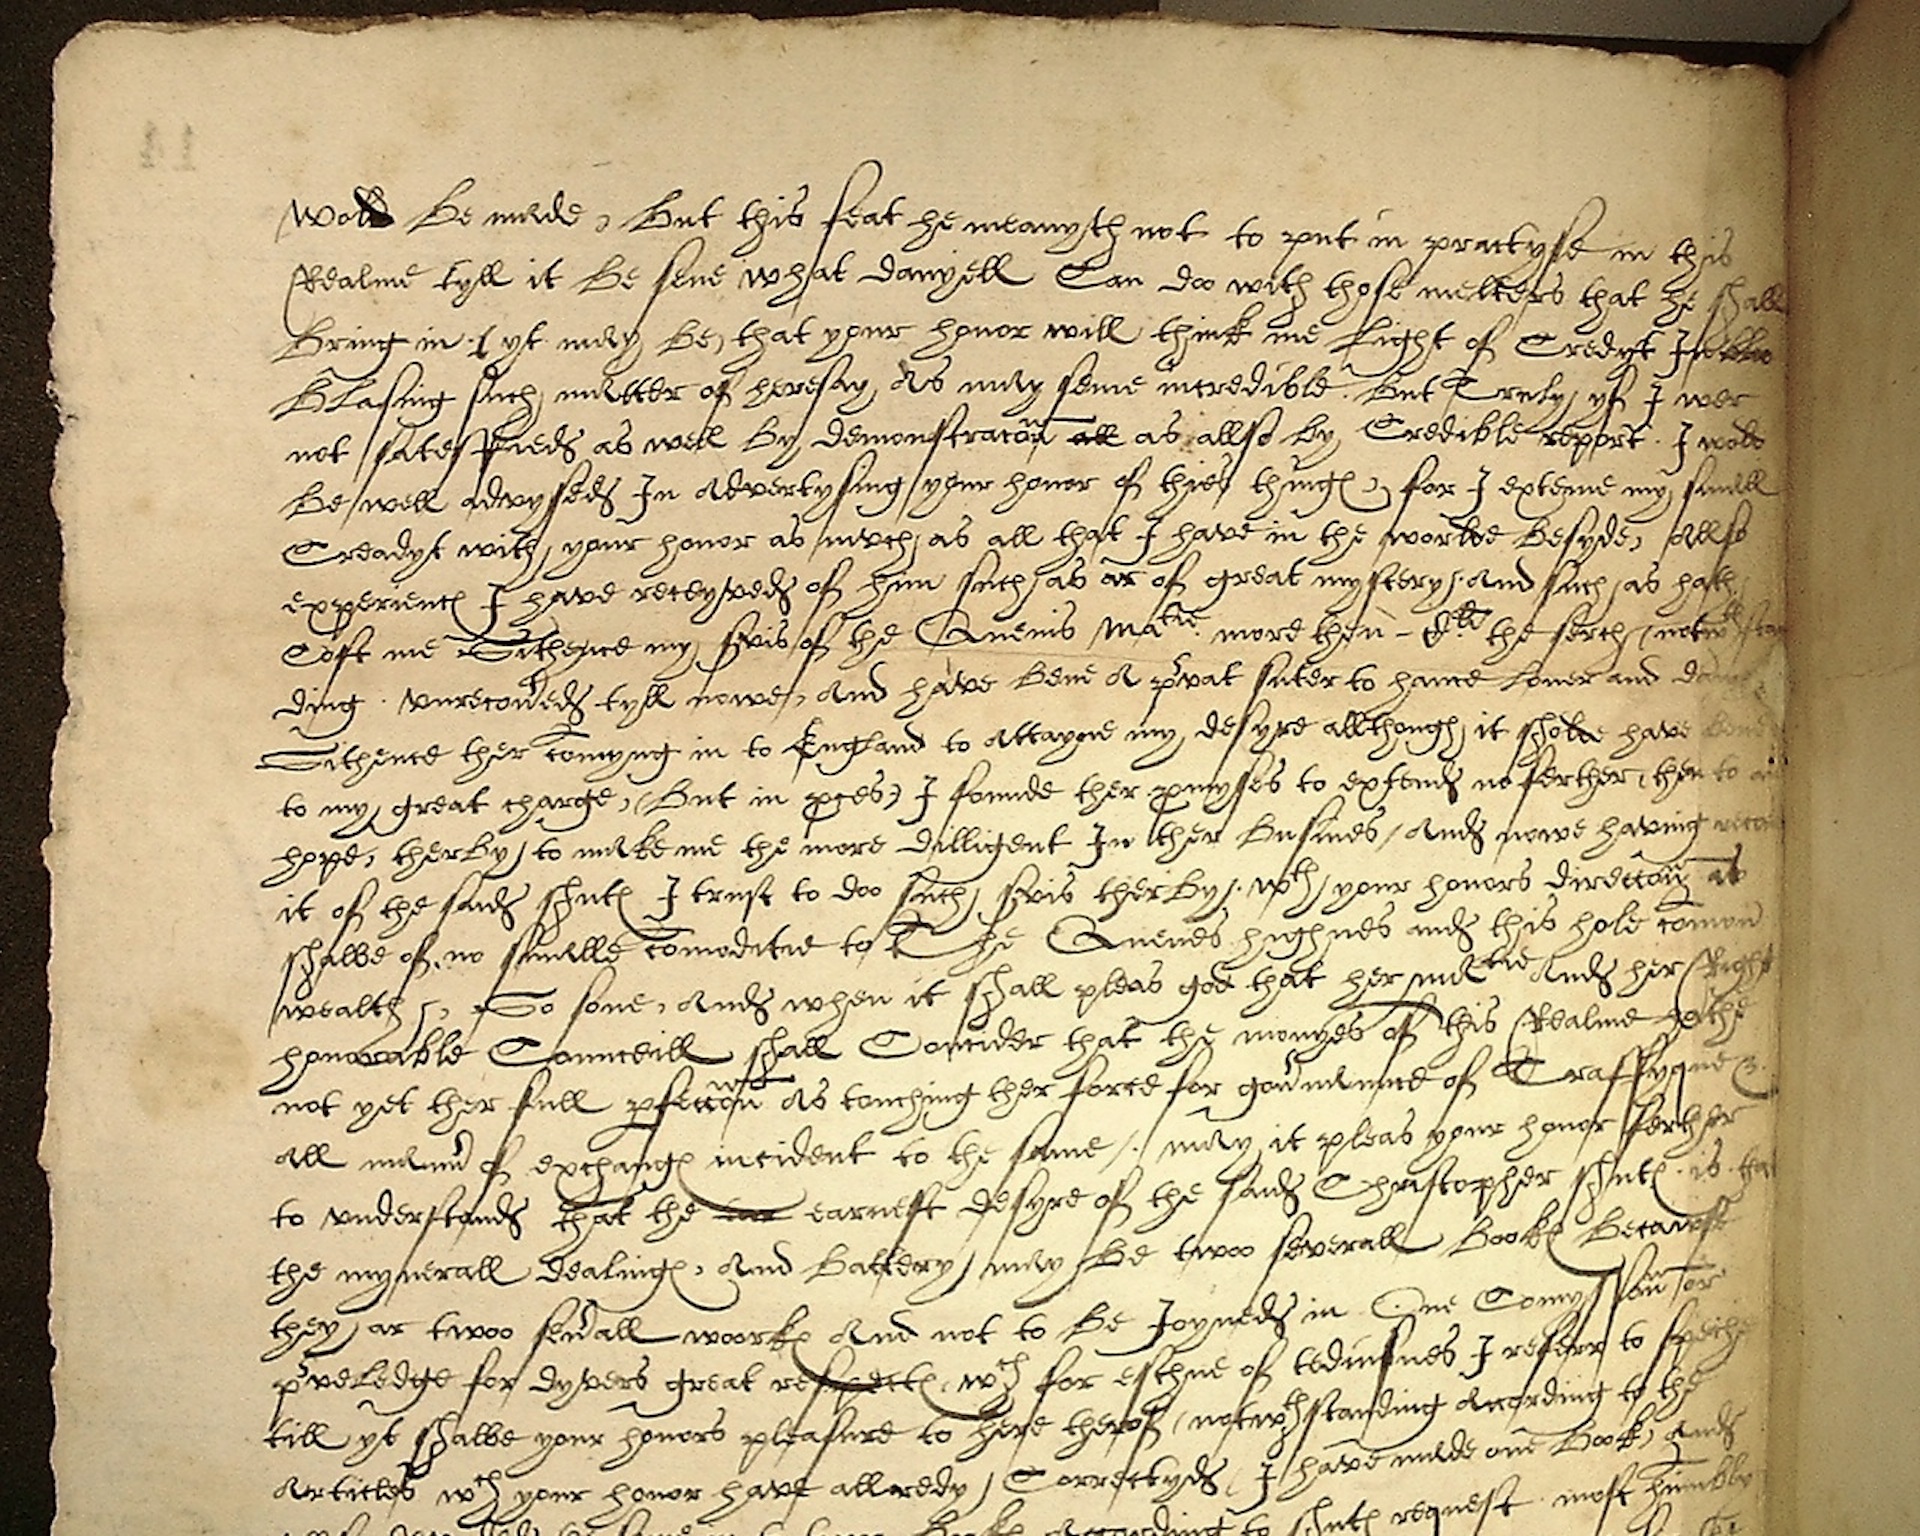 14
wold be made, But this feat he meanyth not to put in practyse in this
Realme tyll it be sene what danyell Can doo with those melters that he shall
Bring in . yt may be, that your honor will think me Light of Credyt In
Blasing such matter of heresay, As may seme incredible. But Truly yf I wer
not satesffied as well By demonstracon all as allso by Credible report. I wold
Be well advysed In Advertysing your honor of thies things, for I exteme my small
Creadyt with your honor as mvch as all that I have in the worlde Besyde, Allso
experience I have receyved of him such as ar of great mystery. And such as hath
Cost me Sithence my svis of the Quenis Matie more then the serch, (notwthstan
ding . vnrecoved tyll nowe, And have bene A pvat suter to hance Loner and
Sithence ther comyng in to England to Attayne my desyre allthough it sholde have bene
to my great charge, (But in pces) I founde ther pmyses to extend no ferther, then to
hope, therBy to make me the more dilligent In ther Busines / And nowe having
it of the said shutz I trust to doo such svis therBy. wth your honors direccon as
shalbe of no smalle comoditie to The Quenes highnes and this hole comon
wealth /, So sone, And when it shall pleas god that her matie And her Right
honorable Counceill shall Concider that the monyes of this Realme hathe
not yet ther full pfeccon As touching ther force for govmance of Traffyque &
All manr of exchange incident to the same /. may it pleas your honor ferther
to vnderstand that the earnest desyre of the said Christopher shutz . is that
the mynerall dealings, And Battery may Be twoo severall Books Becawse
they ar twoo sevall woorks And not to Be Joyned in One Comyssion or
pveledge for dyvers great respects, wch for eschue of tediusnes I referr to speche
till yt shalbe your honors pleasure to here therof (notwthstanding Acording to the
Articles wch your honor have allredy Correctyd, I have made one Book, And
According to shutz request most humbly